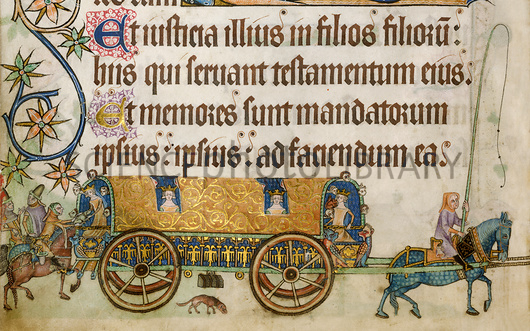 Et iusticia illius in filios filiorū:
hiis qui seruant testamentum eius.
Et memores sunt mandatorum
ipsius: ipsius: ad faciendum ea.
SCIENCE PHOTO LIBRARY